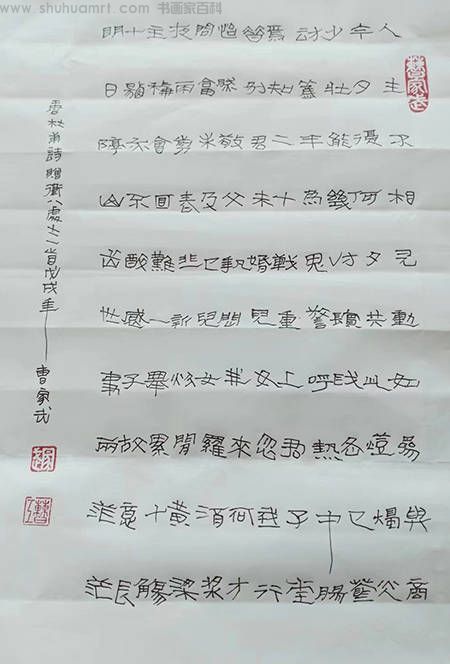 www.shuhuamrt.com 书画家百科
人生不相見動如參與商
今夕復何夕共此燈燭光
少壯能幾時鬢髮各已蒼
訪舊半為鬼驚呼熱中腸
焉知二十載重上君子堂
昔別君未婚兒女忽成行
怡然敬父執問我來何方
問答未及已兒女羅酒漿
夜雨剪春韭新炊間黃粱
主稱會面難一舉累十觴
十觴亦不醉感子故意長
明日隔山岳世事兩茫茫
書杜甫詩贈衛八處士一首戊戌年曹家武
曹家武